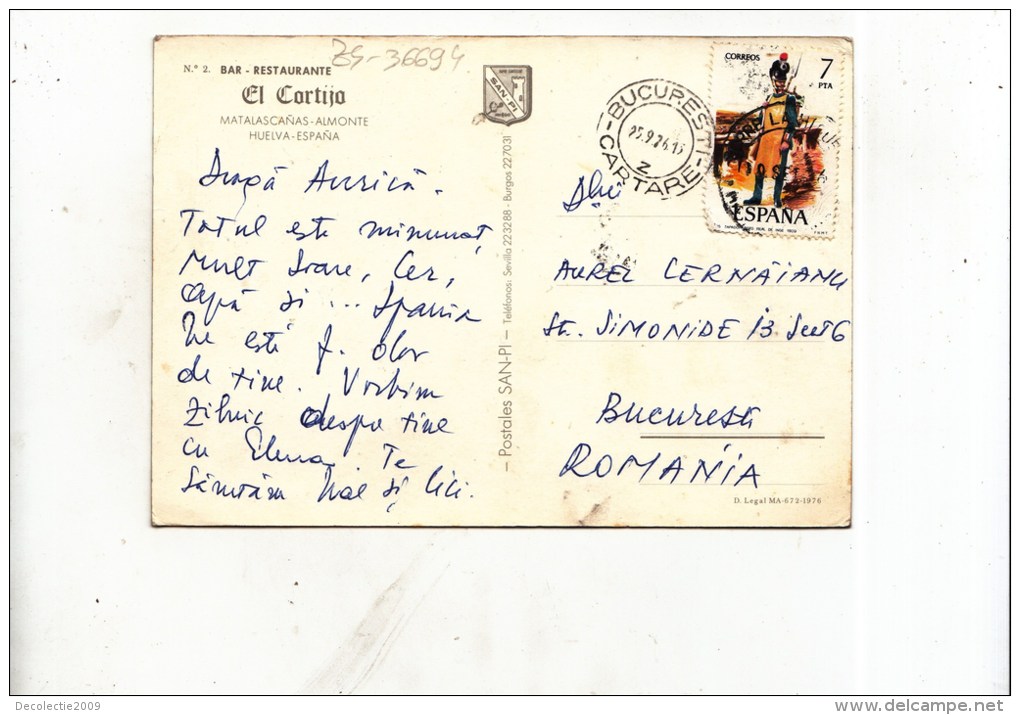 ZS-36694
N.º 2. BAR - RESTAURANTE
El Cortijo
MATALASCAÑAS-ALMONTE
HUELVA-ESPAÑA
Dragă Aurică.
Totul este minunat,
Mult soare, Cer,
apă și ... Spania
Ne este f. dor
de tine. Vorbim
zilnic despre tine
cu Elena. Te
sărutăm Nae și Cici.
SAN-PI
— Postales SAN-PI — Teléfonos: Sevilla 223288 - Burgos 227031
BUCUREȘTI
CARTARE
2
CORREOS
7
PTA
ESPAÑA
F.N.M.T.
AUREL CERNĂIANU
Str. SIMONIDE 13 Sect 6
București
ROMÂNIA
D. Legal MA-672-1976
Decolectie2009
delcampe.net